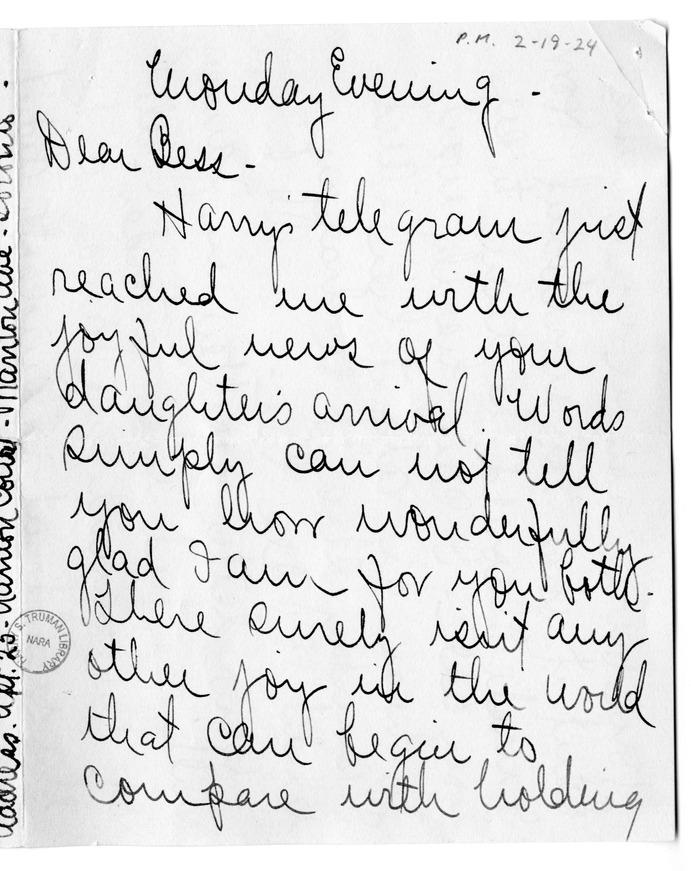 P.M. 2-19-24
Monday Evening -
Dear Bess -
Harry's telegram just
reached me with the
joyful news of your
daughter's arrival. Words
simply can not tell
you how wonderfully
glad I am for you both.
There surely isn't any
other joy in the world
that can begin to
compare with holding
Address. Apt. 23. Manton Court - Manton Ave -
S. TRUMAN LIBRARY
NARA